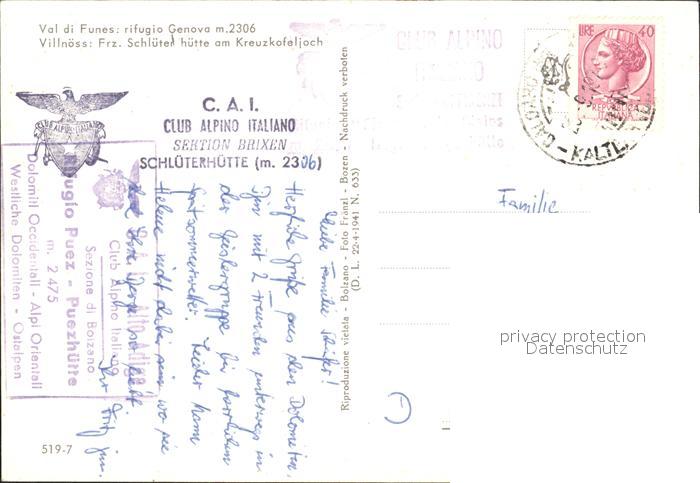 Val di Funes: rifugio Genova m.2306
Villnöss: Frz. Schlüter hütte am Kreuzkofeljoch
CLUB ALPINO
ITALIANO
LIRE 40
REPUBBLICA
ITALIANA
KALT
C. A. I.
CLUB ALPINO ITALIANO
SEKTION BRIXEN
SCHLÜTERHÜTTE (m. 2306)
C.A.I. Alto Adige
Club Alpino Italiano
Sezione di Bolzano
Rifugio Puez - Puezhütte
m. 2475
Dolomiti Occidentali - Alpi Orientali
Westliche Dolomiten - Ostalpen
Liebe Familie
Herzliche Grüße aus den Dolomiten.
Bin mit 2 Freunden unterwegs in
der Geislergruppe bei herrlichem
Spätsommerwetter. Leider kann
Helene nicht dabei sein wo sie
doch Ihre Berge so liebt.
Ihr Fritz jun.
Riproduzione vietata - Bolzano - Foto Fränzl - Bozen - Nachdruck verboten
(D. L. 22-4-1941 N. 633)
Familie
privacy protection
Datenschutz
519-7